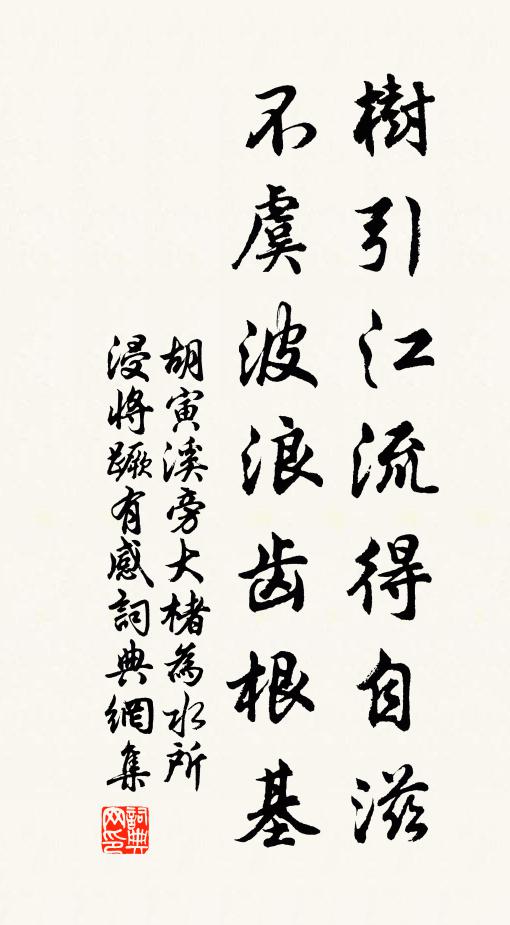 樹引江流得自滋
不虞波浪齿根基
胡寅溪旁大楮為水所
浸将蹶有感詞典網集
詞典
网印